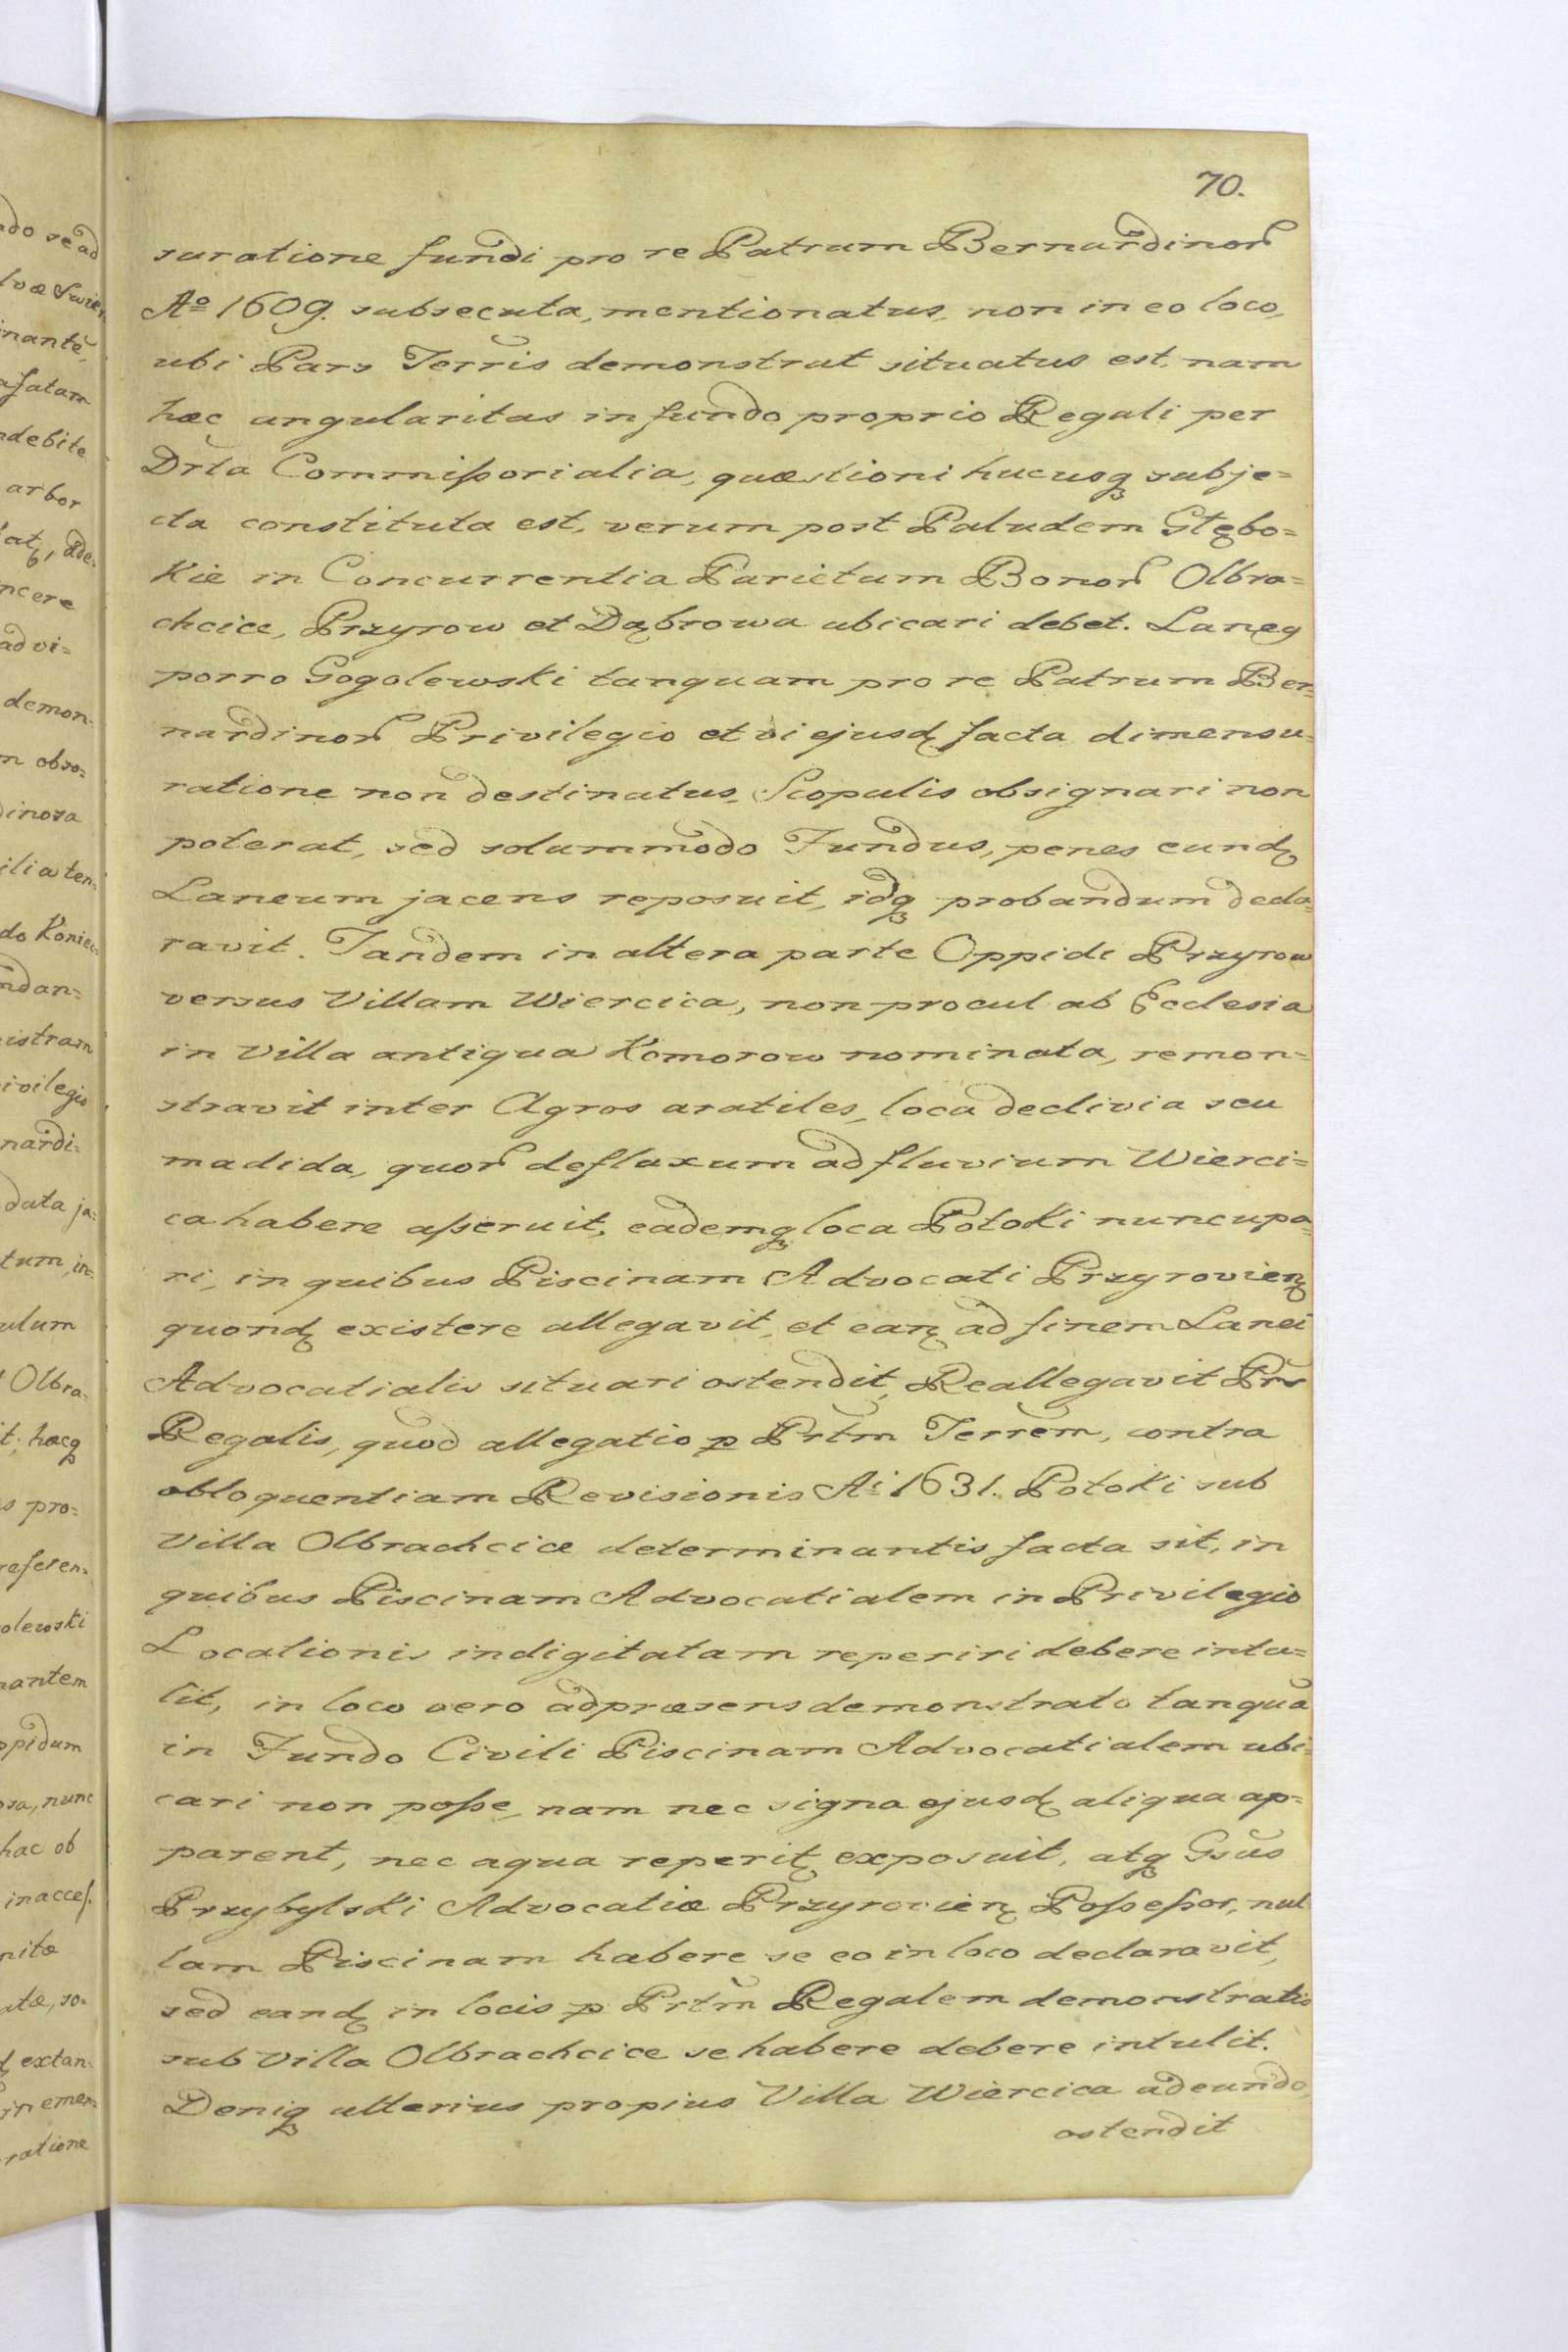 70.
suratione fundi pro re Patrum Bernardinor̃
Aº 1609. subsecuta, mentionatus, non in eo loco,
ubi Pars Terris demonstrat situatus est, nam
hæc angularitas in fundo proprio Regali per
Drta Commißorialia, quæstioni hucusq subje=
cta constituta est, verum post Paludem Głębo=
kie in Concurrentia Parietum Bonor̃ Olbra=
chcice, Przyrow et Dąbrowa ubicari debet. Laneg
porro Gogolewski tanquam pro re Patrum Ber=
nardinor̃ Privilegio et vi ejusd facta dimensu=
ratione non destinatus, Scopulis obsignari non
poterat, sed solummodo Fundus, penes eund
Laneum jacens reposuit, idq probandum decla=
ravit. Tandem in altera parte Oppidi Przyrow
versus Villam Wiercica, non procul ab Ecclesia
in Villa antiqua Komorow nominata, remon=
stravit inter Agros aratiles, loca declivia seu
madida, quor̃ defluxum ad fluvium Wierci=
ca habere aßeruit, eademq loca Potoki nuncupa=
ri, in quibus Piscinam Advocati Przyrovien
quond existere allegavit, et ean ad finem Lanei
Advocatialis situari ostendit, Reallegavit Prs
Regalis, quod allegatio p Prtm Terrem, contra
obloquentiam Revisionis Ai 1631. Potoki sub
Villa Olbrachcice determinantis facta sit, in
quibus Piscinam Advocatialem in Privilegio
Locationis indigitatam reperiri debere intu=
lit, in loco vero ad præsens demonstrato tanquã
in Fundo Civili Piscinam Advocatialem ubi=
cari non poße, nam nec signa ejusd aliqua ap=
parent, nec aqua reperit exposuit, atq Gsus
Przybylski Advocatiæ Przyrovien Poßeßor, nul
lam Piscinam habere se eo in loco declaravit,
sed eand in locis p Prtm Regalem demonstratis
sub Villa Olbrachcice se habere debere intulit.
Deniq ulterius propius Villa Wiercica adeundo,
ostendit